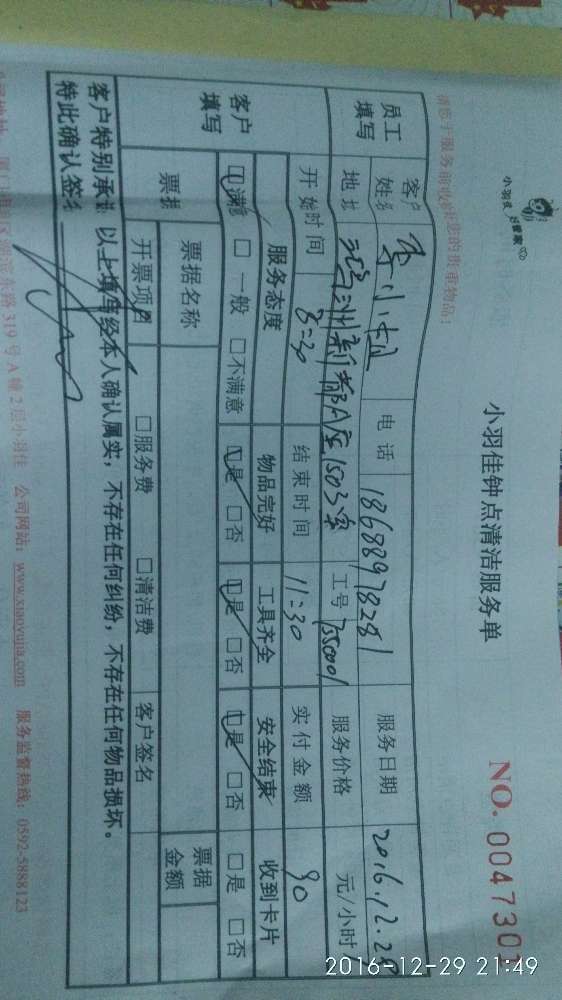 小羽佳 好管家
小羽佳钟点清洁服务单
NO. 004730
您的贵重物品：
员工填写 客户姓名 李小姐 电话 18688978281 服务日期 2016.12.28
地址 新都A座1503室 工号 服务价格 元/小时
开始时间 8=30 结束时间 11=30 实付金额 90
客户填写 服务态度 物品完好 工具齐全 安全结束 收到卡片
□满意 □一般 □不满意 □是 □否 □是 □否 □是 □否 □是 □否
票据名称 票据金额
开票项目 □服务费 □清洁费 客户签名
以上填写经本人确认属实，不存在任何纠纷，不存在任何物品损坏。
特此确认签名
东路319号A幢2层小羽佳 公司网站：www.xiaoyujia.com 服务监督热线：0592-5888123
2016-12-29 21:49